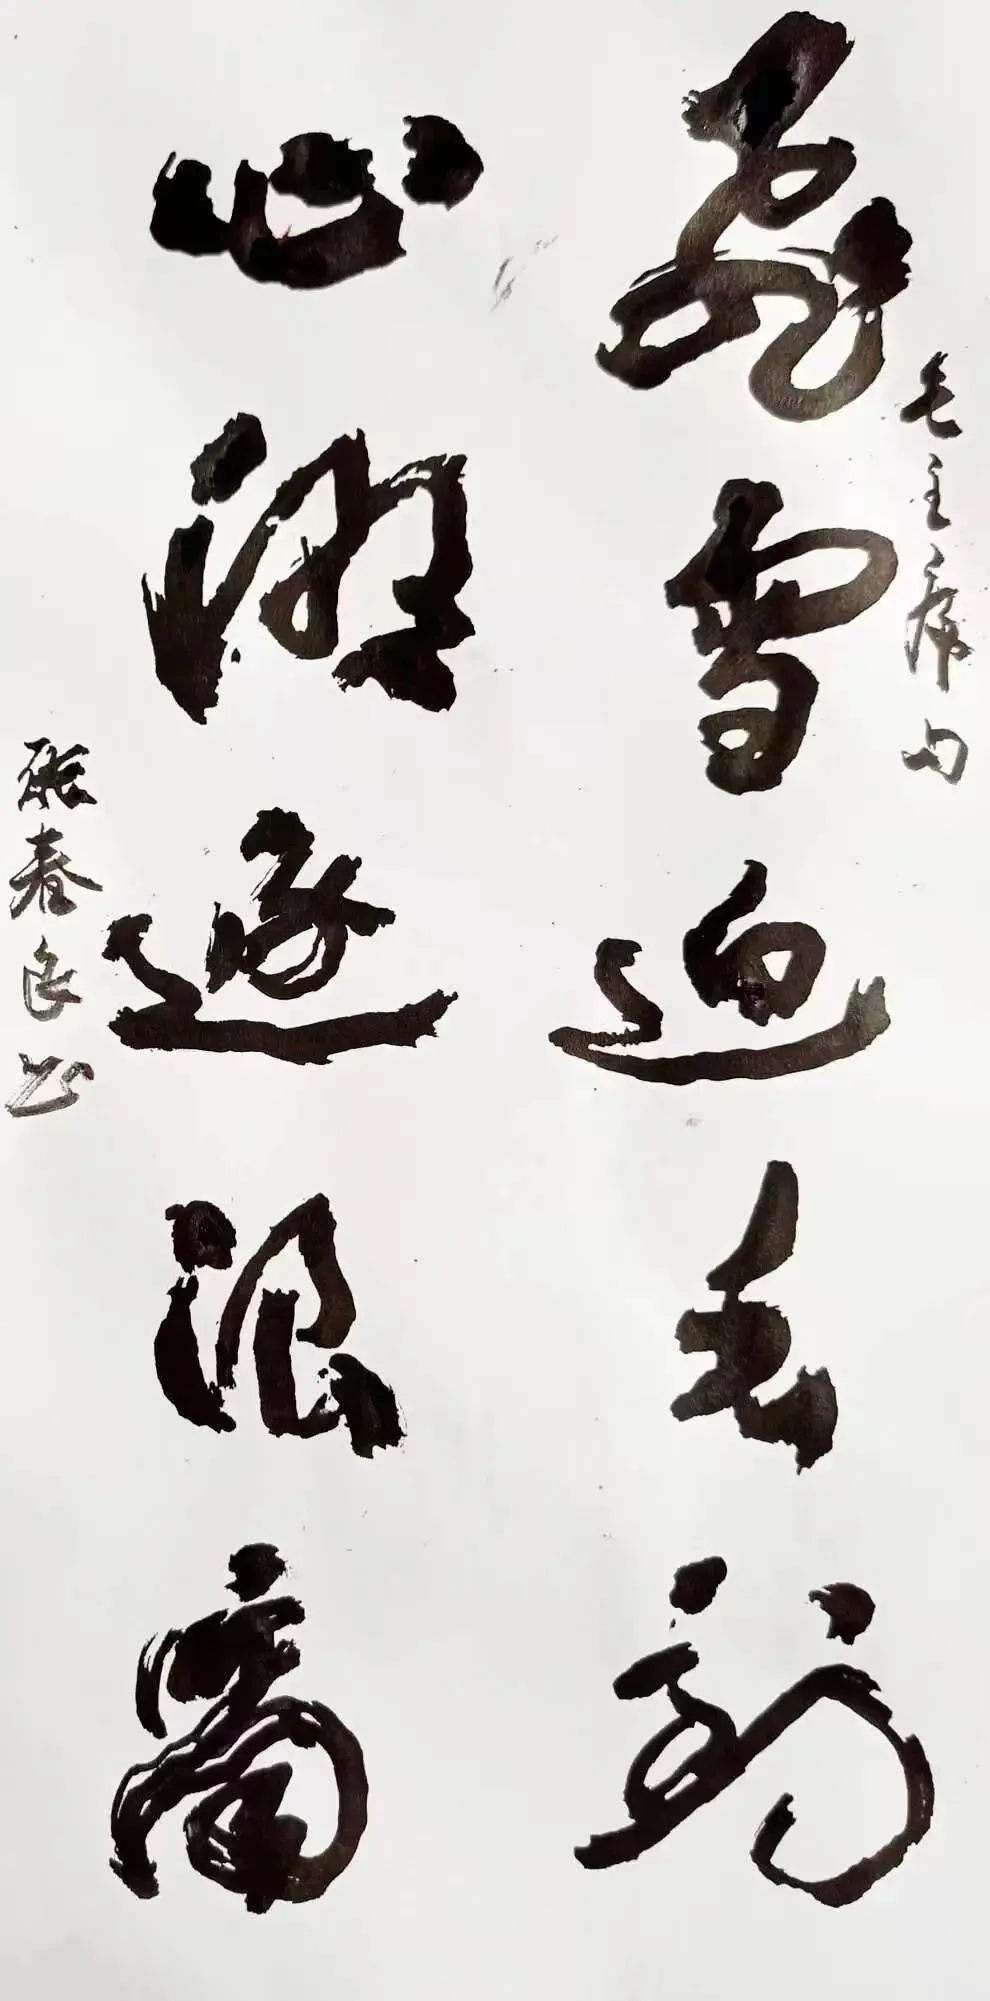 毛主席句
飛雪迎春到
心潮逐浪高
張春良书